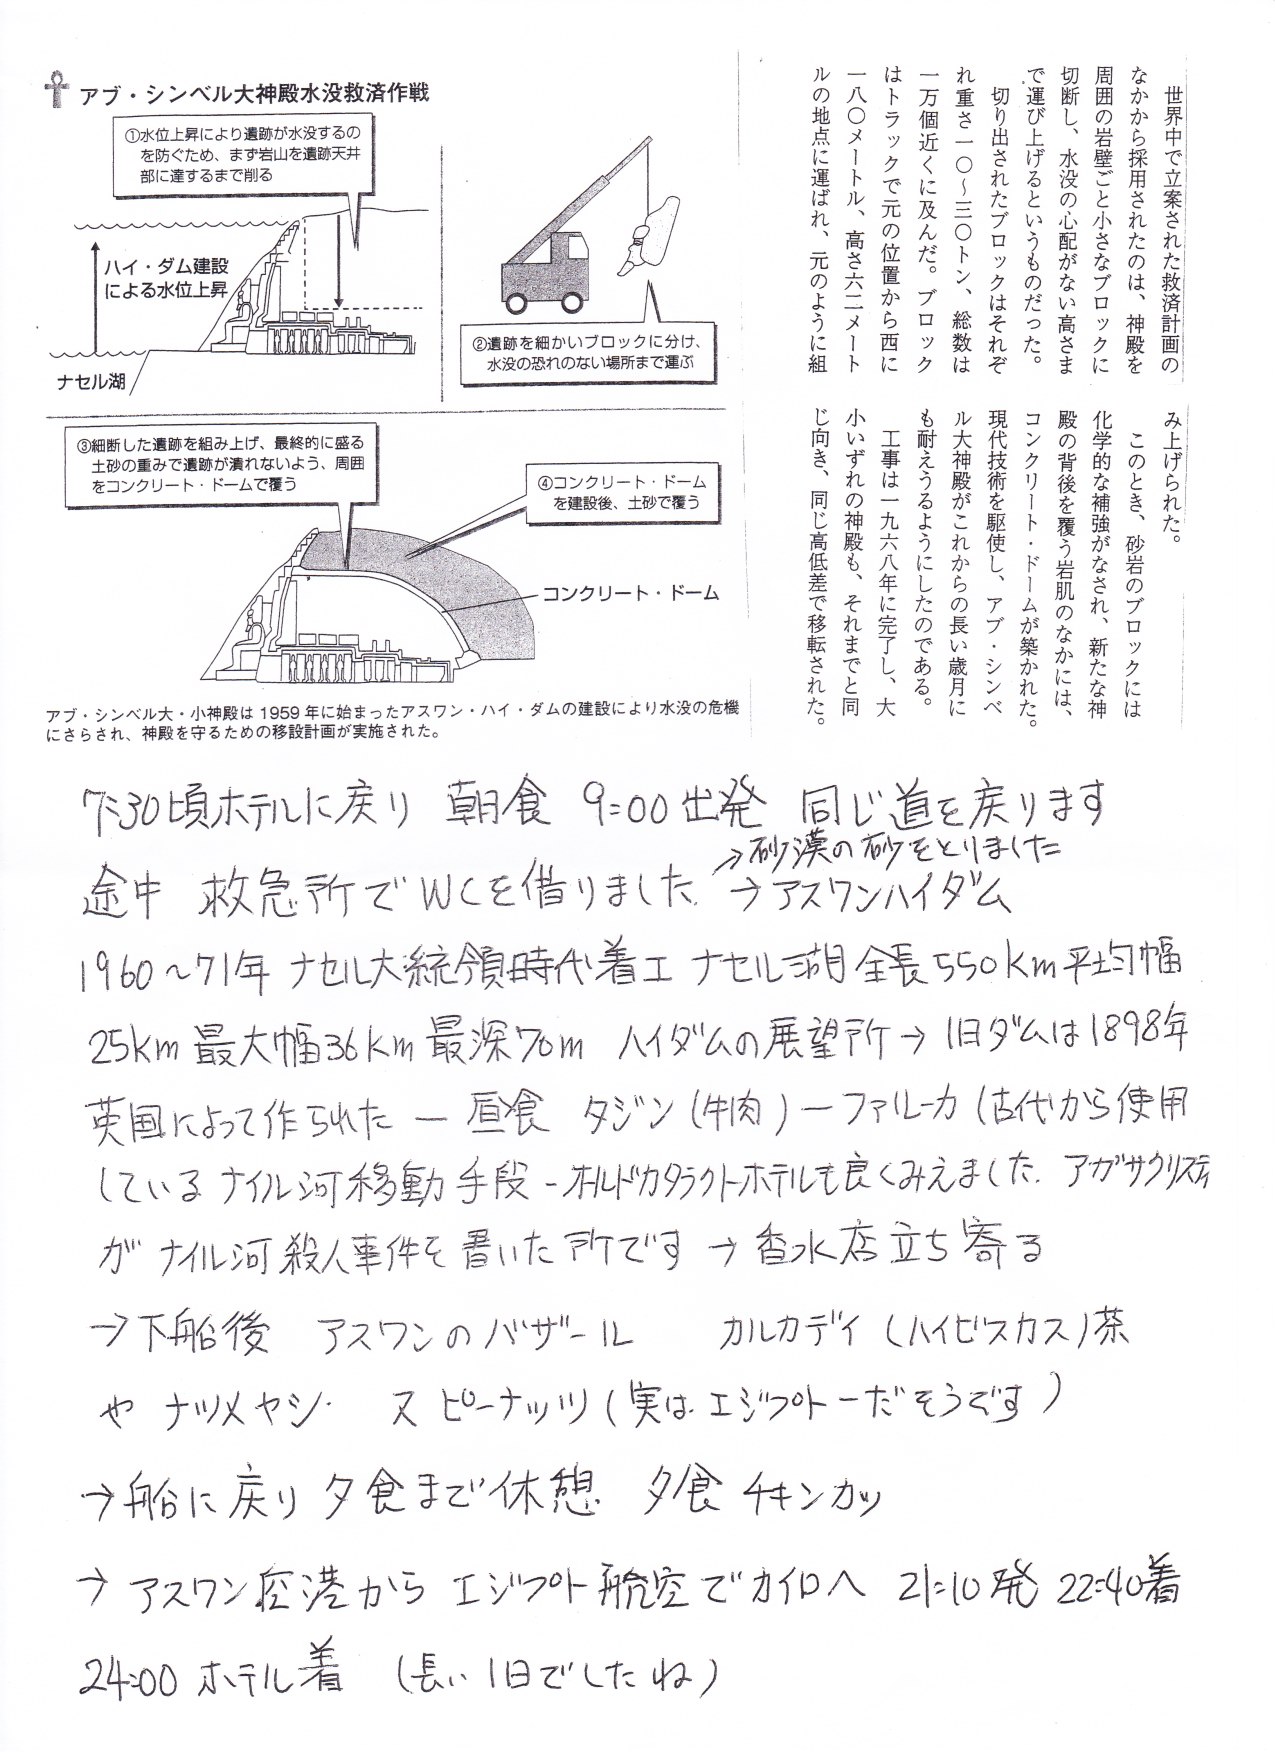 アブ・シンベル大神殿水没救済作戦
①水位上昇により遺跡が水没するの
を防ぐため、まず岩山を遺跡天井
部に達するまで削る
ハイ・ダム建設
による水位上昇
ナセル湖
②遺跡を細かいブロックに分け、
水没の恐れのない場所まで運ぶ
③細断した遺跡を組み上げ、最終的に盛る
土砂の重みで遺跡が潰れないよう、周囲
をコンクリート・ドームで覆う
④コンクリート・ドーム
を建設後、土砂で覆う
コンクリート・ドーム
アブ・シンベル大・小神殿は1959年に始まったアスワン・ハイ・ダムの建設により水没の危機
にさらされ、神殿を守るための移設計画が実施された。
世界中で立案された救済計画の
なかから採用されたのは、神殿を
周囲の岩壁ごと小さなブロックに
切断し、水没の心配がない高さま
で運び上げるというものだった。
切り出されたブロックはそれぞ
れ重さ一〇〜三〇トン、総数は
一万個近くに及んだ。ブロック
はトラックで元の位置から西に
一八〇メートル、高さ六二メート
ルの地点に運ばれ、元のように組
み上げられた。
このとき、砂岩のブロックには
化学的な補強がなされ、新たな神
殿の背後を覆う岩肌のなかには、
コンクリート・ドームが築かれた。
現代技術を駆使し、アブ・シンベ
ル大神殿がこれからの長い歳月に
も耐えうるようにしたのである。
工事は一九六八年に完了し、大
小いずれの神殿も、それまでと同
じ向き、同じ高低差で移転された。
7:30頃ホテルに戻り 朝食 9:00出発 同じ道を戻ります
→砂漠の砂をとりました
途中 救急所でWCを借りました. →アスワンハイダム
1960~71年 ナセル大統領時代着工 ナセル湖 全長550km平均幅
25km 最大幅36km 最深70m ハイダムの展望所→旧ダムは1898年
英国によって作られた ー 昼食 タジン(牛肉)ーファルーカ(古代から使用
しているナイル河移動手段-オールドカタラクトホテルも良くみえました. アガサクリスティ
が ナイル河殺人事件を書いた所です → 香水店立ち寄る
→下船後 アスワンのバザール カルカデイ(ハイビスカス)茶
や ナツメヤシ. 又ピーナッツ(実はエジプトーだそうです)
→船に戻り夕食まで休憩 夕食 チキンカツ
→ アスワン空港から エジプト航空でカイロへ 21:10発 22:40着
24:00 ホテル着 (長い1日でしたね)